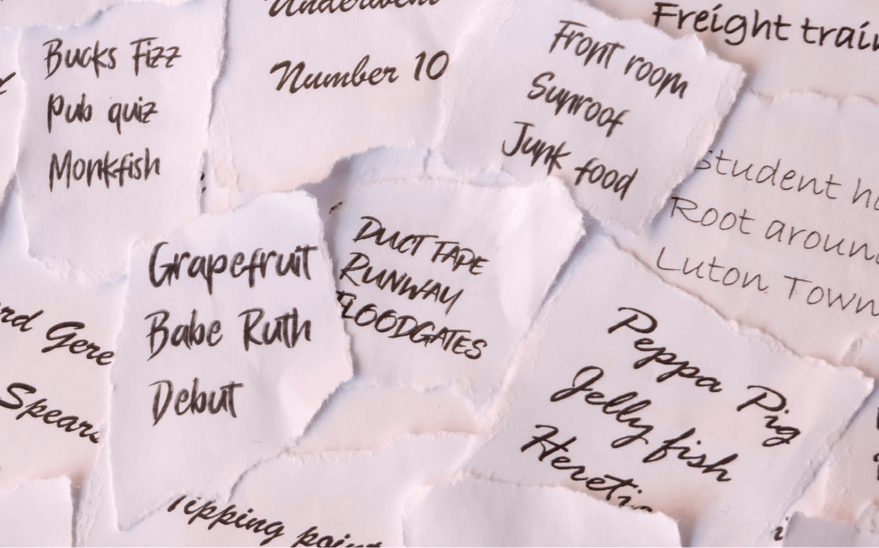 Underwent
Number 10
Freight train
Bucks Fizz
Pub quiz
Monkfish
Front room
Sunroof
Junk food
Student
Root
Luton Town
Grapefruit
Babe Ruth
Debut
DUCT TAPE
RUNWAY
FLOODGATES
Gere
Peppa Pig
Jelly fish
Tipping point